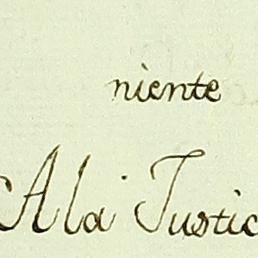 niente
Ala Justic